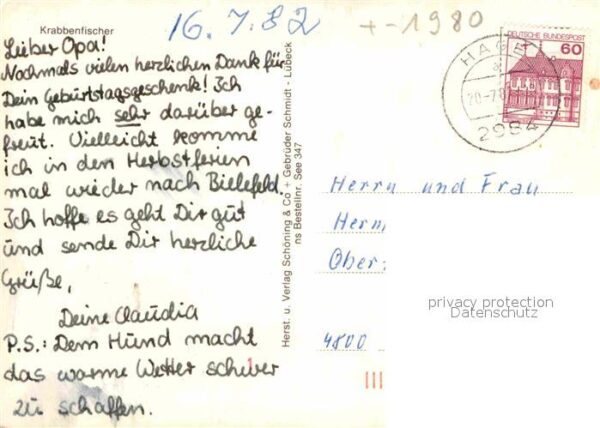 Krabbenfischer
16.7.82
+-1980
Lieber Opa!
Nochmals vielen herzlichen Dank für
Dein Geburtstagsgeschenk! Ich
habe mich sehr darüber ge-
freut. Vielleicht komme
ich in den Herbstferien
mal wieder nach Bielefeld.
Ich hoffe es geht Dir gut
und sende Dir herzliche
Grüße,
Deine Claudia
P.S.: Dem Hund macht
das warme Wetter schwer
zu schaffen.
Herst. u. Verlag Schöning & Co + Gebrüder Schmidt - Lübeck
ns Bestellnr. See 347
DEUTSCHE BUNDESPOST
60
HAGE
2984
Herrn und Frau
Herm
Ober
4800
privacy protection
Datenschutz